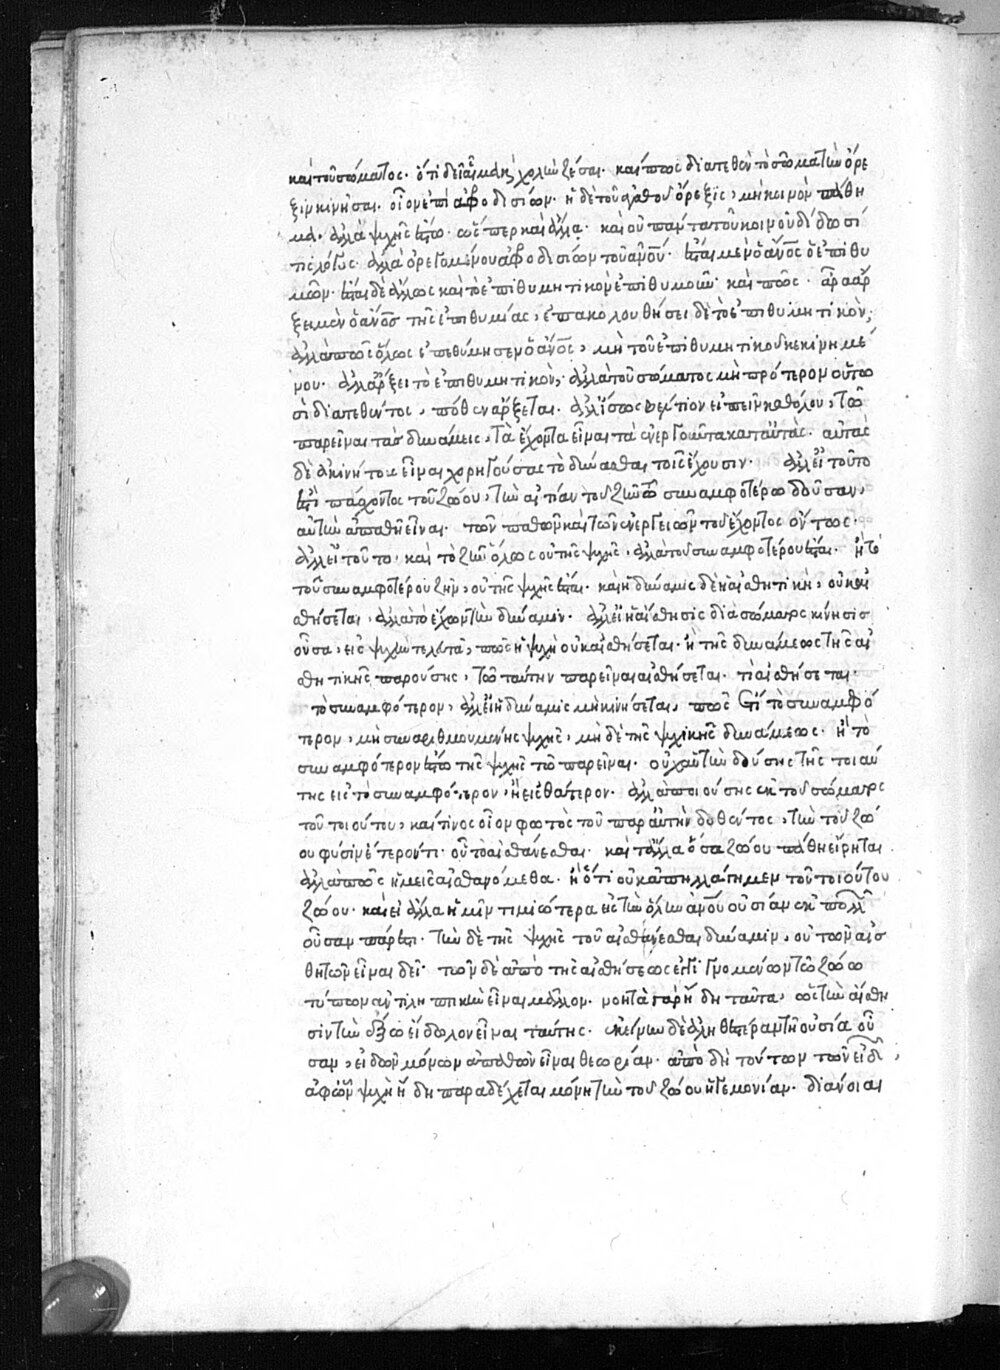 καὶ τοῦ σώματος. ὅτι δεῖ αἷμα ἢ χολὴν ζέσαι. καί πως διατεθὲν τὸ σῶμα τὴν ὄρε
ξιν κινῆσαι. οἷον ἐπὶ ἀφροδισίων. ἡ δὲ τοῦ ἀγαθοῦ ὄρεξις, μὴ κοινὸν πάθη
μα. ἀλλὰ ψυχῆς ἔστω. ὥσπερ καὶ ἄλλα. καὶ οὐ πάντα τοῦ κοινοῦ δίδωσί
τις λόγος. ἀλλὰ ὀρεγομένου ἀφροδισίων τοῦ ἀνου. ἔσται μὲν ὁ ἄνος ὁ ἐπιθυ
μῶν. ἔσται δὲ ἄλλως καὶ τὸ ἐπιθυμητικὸν ἐπιθυμοῦν. καὶ πῶς. ἆρα ἄρ
ξει μὲν ὁ ἄνος τῆς ἐπιθυμίας, ἐπακολουθήσει δὲ τὸ ἐπιθυμητικόν;
ἀλλὰ πῶς ὅλως ἐπεθύμησεν ὁ ἄνος, μὴ τοῦ ἐπιθυμητικοῦ κεκινημέ
νου. ἀλλ' ἄρξει τὸ ἐπιθυμητικόν, ἀλλὰ τοῦ σώματος μὴ πρότερον οὕτω
σὶ διατεθέντος, πόθεν ἄρξεται. ἀλλ' ἴσως βέλτιον εἰπεῖν καθόλου, τῷ
παρεῖναι τὰς δυνάμεις, τὰ ἔχοντα εἶναι τὰ ἐνεργοῦντα κατ' αὐτάς. αὐτὰς
δὲ ἀκινήτους εἶναι χορηγούσας τὸ δύνασθαι τοῖς ἔχουσιν. ἀλλ' εἰ τοῦτο
ἔστι πάσχοντος τοῦ ζώου, τὴν αἰτίαν τοῦ ζῆν τῷ συναμφοτέρω δοῦσαν,
αὐτὴν ἀπαθῆ εἶναι. τῶν παθῶν καὶ τῶν ἐνεργειῶν τοῦ ἔχοντος ὄντος.
ἀλλ' εἰ τοῦτο. καὶ τὸ ζῆν ὅλως οὐ τῆς ψυχῆς, ἀλλὰ τοῦ συναμφοτέρου ἔσται. ἢ τὸ
τοῦ συναμφοτέρου ζῆν, οὐ τῆς ψυχῆς ἔσται. καὶ ἡ δύναμις δὲ ἡ αἰσθητική, οὐκ αἰ
σθήσεται, ἀλλὰ τὸ ἔχον τὴν δύναμιν. ἀλλ' εἰ ἡ αἴσθησις διὰ σώματος κίνησις
οὖσα, εἰς ψυχὴν τελευτᾶ, πῶς ἡ ψυχὴ οὐκ αἰσθήσεται. ἢ τῆς δυνάμεως τῆς αἰ
σθητικῆς παρούσης, τῷ ταύτην παρεῖναι αἰσθήσεται. τί αἰσθήσεται.
τὸ συναμφότερον, ἀλλ' εἰ ἡ δύναμις μὴ κινήσεται, πῶς ἔτι τὸ συναμφό
τερον, μὴ συναριθμουμένης ψυχῆς, μὴ δὲ τῆς ψυχικῆς δυνάμεως. ἢ τὸ
συναμφότερον ἔστω τῆς ψυχῆς τῶ παρεῖναι. οὐχ αὑτὴν δούσης τῆς τοιαύ
της εἰς τὸ συναμφότερον, ἢ εἰς θάτερον. ἀλλὰ ποιούσης ἐκ τοῦ σώματος
τοῦ τοιούτου, καί τινος οἷον φωτὸς τοῦ παρ' αὐτὴν δοθέντος, τὴν τοῦ ζώ
ου φύσιν ἕτερόν τι. οὗ τὸ αἰσθάνεσθαι. καὶ τὰ ἄλλα ὅσα ζώου πάθη εἴρηται.
ἀλλὰ πῶς ἡμεῖς αἰσθανόμεθα. ἢ ὅτι οὐκ ἀπηλλάγημεν τοῦ τοιούτου
ζώου. καὶ εἰ ἄλλα ἡμῖν τιμιώτερα εἰς τὴν ὅλην ἀνου οὐσίαν ἐκ πολλῶν
οὖσαν πάρεστι. τὴν δὲ τῆς ψυχῆς τοῦ αἰσθάνεσθαι δύναμιν, οὐ τῶν αἰσ
θητῶν εἶναι δεῖ. τῶν δὲ ἀπὸ τῆς αἰσθήσεως ἐγγιγνομένων τῷ ζώω
τύπων ἀντιληπτικὴν εἶναι μᾶλλον. νοητὰ γὰρ ἤδη ταῦτα, ὡς τὴν αἴσθη
σιν τὴν ἔξω εἴδωλον εἶναι ταύτης. ἐκείνην δὲ ἀληθεστέραν τῆ οὐσία οὖ
σαν, εἰδῶν μόνων ἀπαθῶν εἶναι θεωρίαν. ἀπὸ δὴ τούτων τῶν εἰδῶν,
ἀφ' ὧν ψυχὴ ἤδη παραδέχεται μόνη τὴν τοῦ ζώου ἡγεμονίαν. διάνοιαι